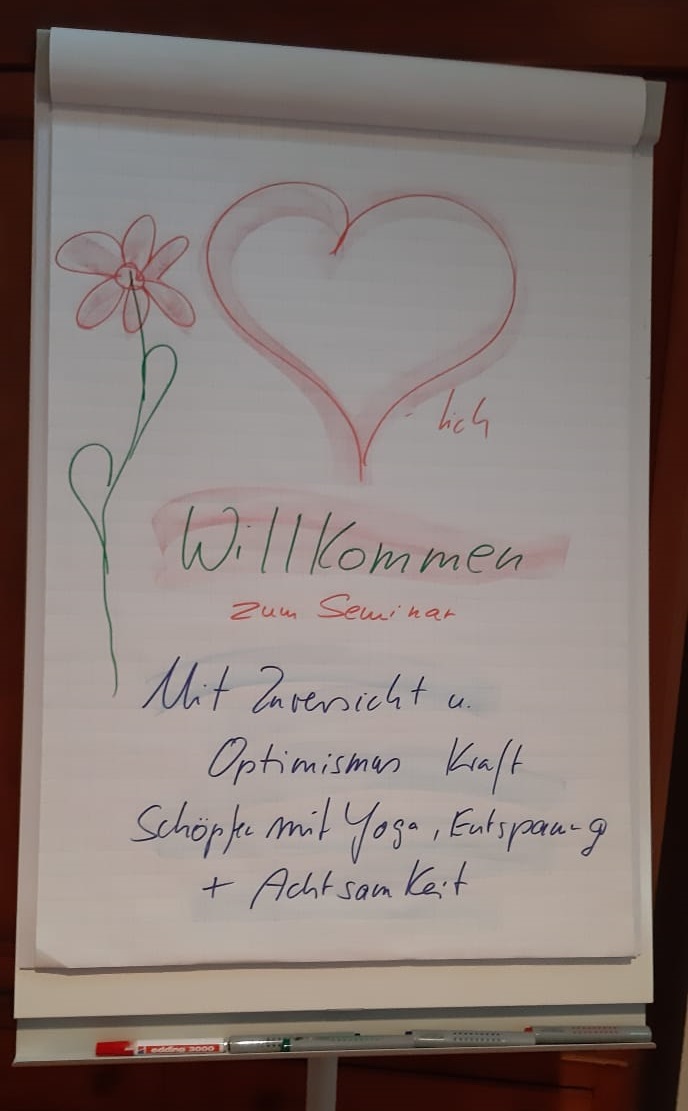 - lich
Willkommen
zum Seminar
Mit Zuversicht u.
Optimismus Kraft
Schöpfen mit Yoga, Entspannung
+ Achtsamkeit
edding 3000